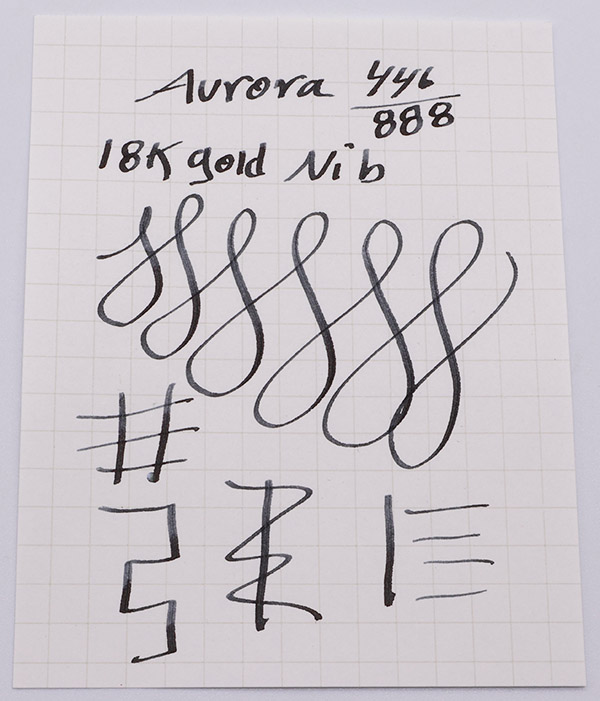 Aurora 446/888
18K gold Nib